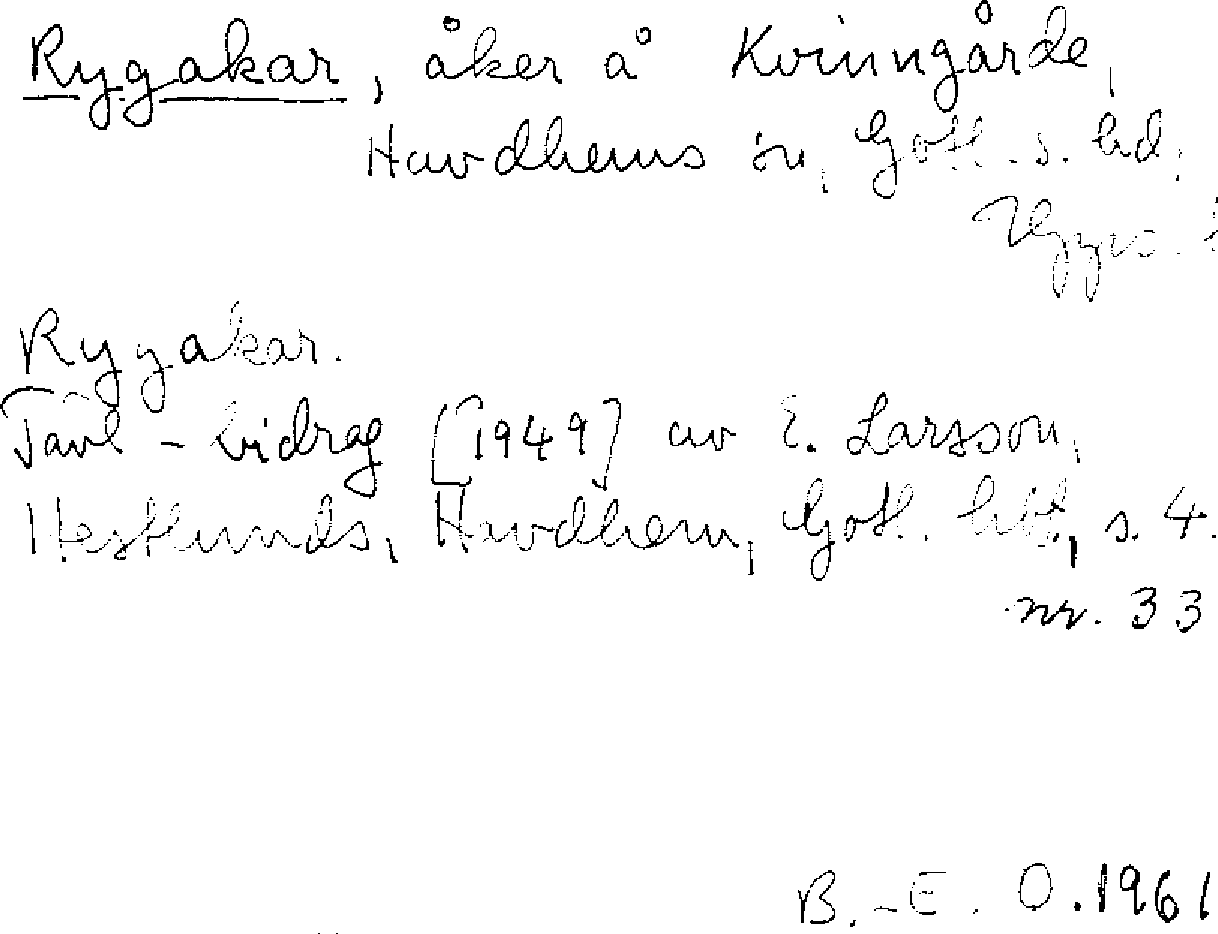 Rygakar, åker å Kvinngårde,
Havdhems sn, Gotl. s. hd,
Rygakar.
Tävl-bidrag [1949] av E. Larsson,
Hestlunds, Havdhem, Gotl. htl, s. 4.
nr. 33
B.-E. O. 1961